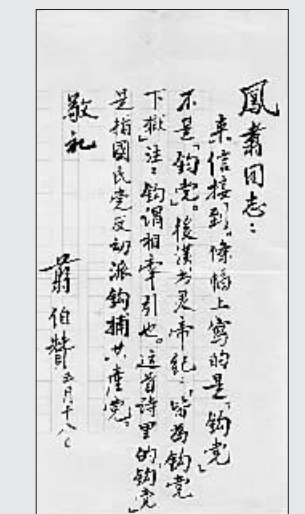 鳳翥同志：
来信接到。條幅上寫的是「鈎党」
不是「鈞党」。後漢书灵帝纪：「皆為鈎党
下獄」注：鈎谓相牵引也。这首诗里的「鈎党」
是指國民党反动派鈎捕共產党。
敬礼
翦伯赞 五月十八